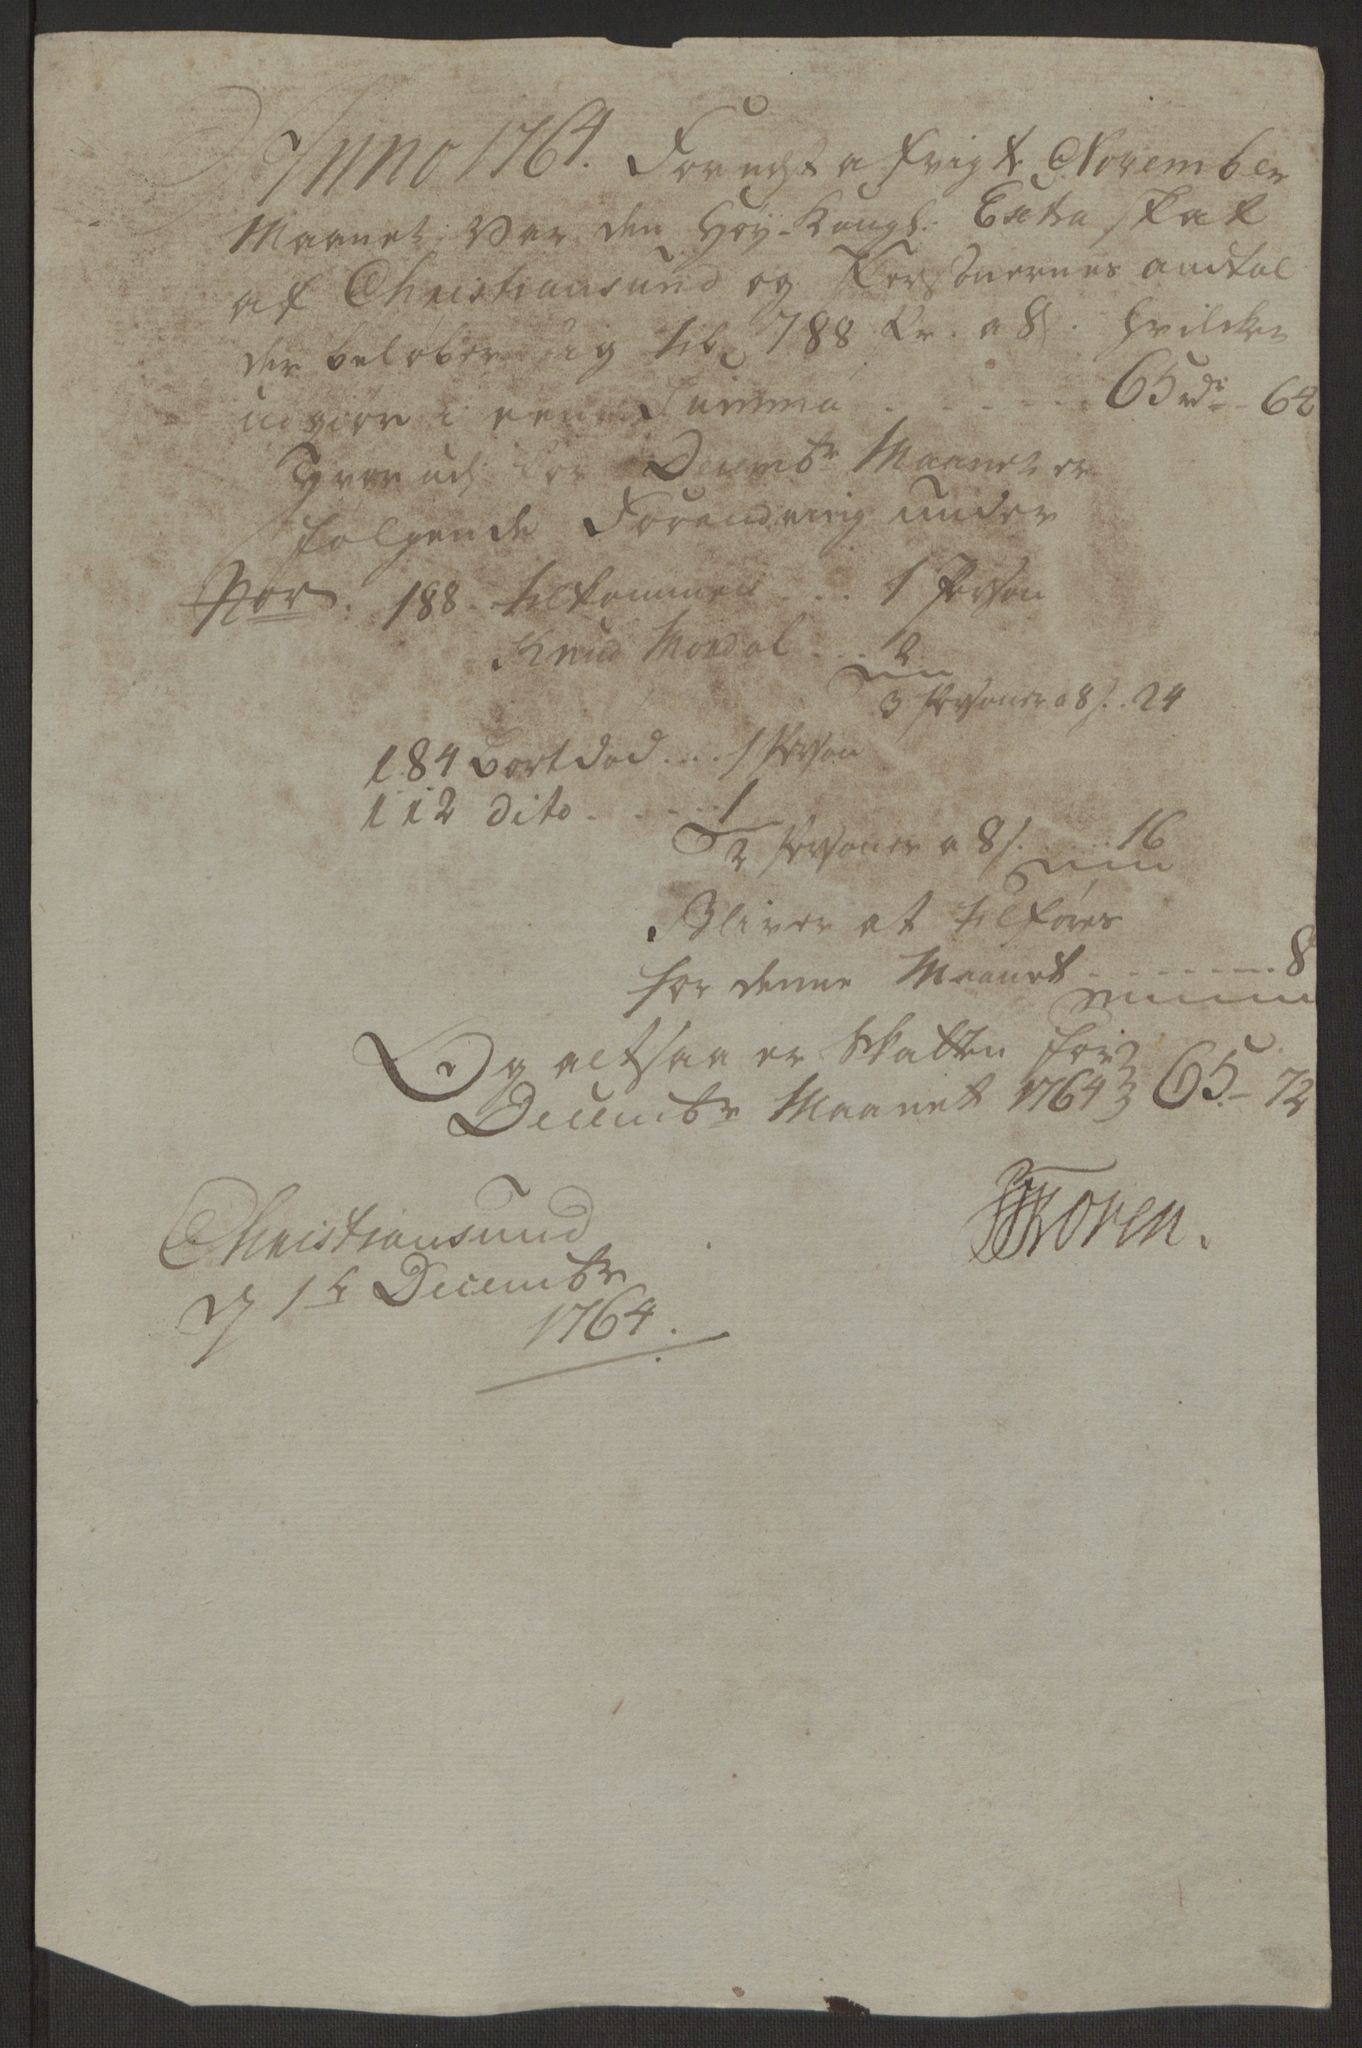 Anno 1764. Forrest afvigt November
Maanet var den Høy-Kongl: Extra Skat
af Christiansund og Persohnernes andtal
der beløber sig til 788 Pr. a 8 s. hvilcket
udgiør i een Summa - - - - - 65 rdr - 64
Hvor ud for Decembr Maanet er
følgende Forandring under
No: 188. tilkommen . . . 1 Person
Knud Mondal . . . 2
3 Personer a 8 s. . 24
184 bortdød . . . 1 Person
112 dito . . . . . 1
2 Personer a 8 s. . . . 16
Bliver at tilføres
for denne Maanet - - - - - - - 8
Og altsaa er Skatten for
Decembr Maanet 1764 65. - 72
Christiansund
d 1te Decembr
1764.
Koren.